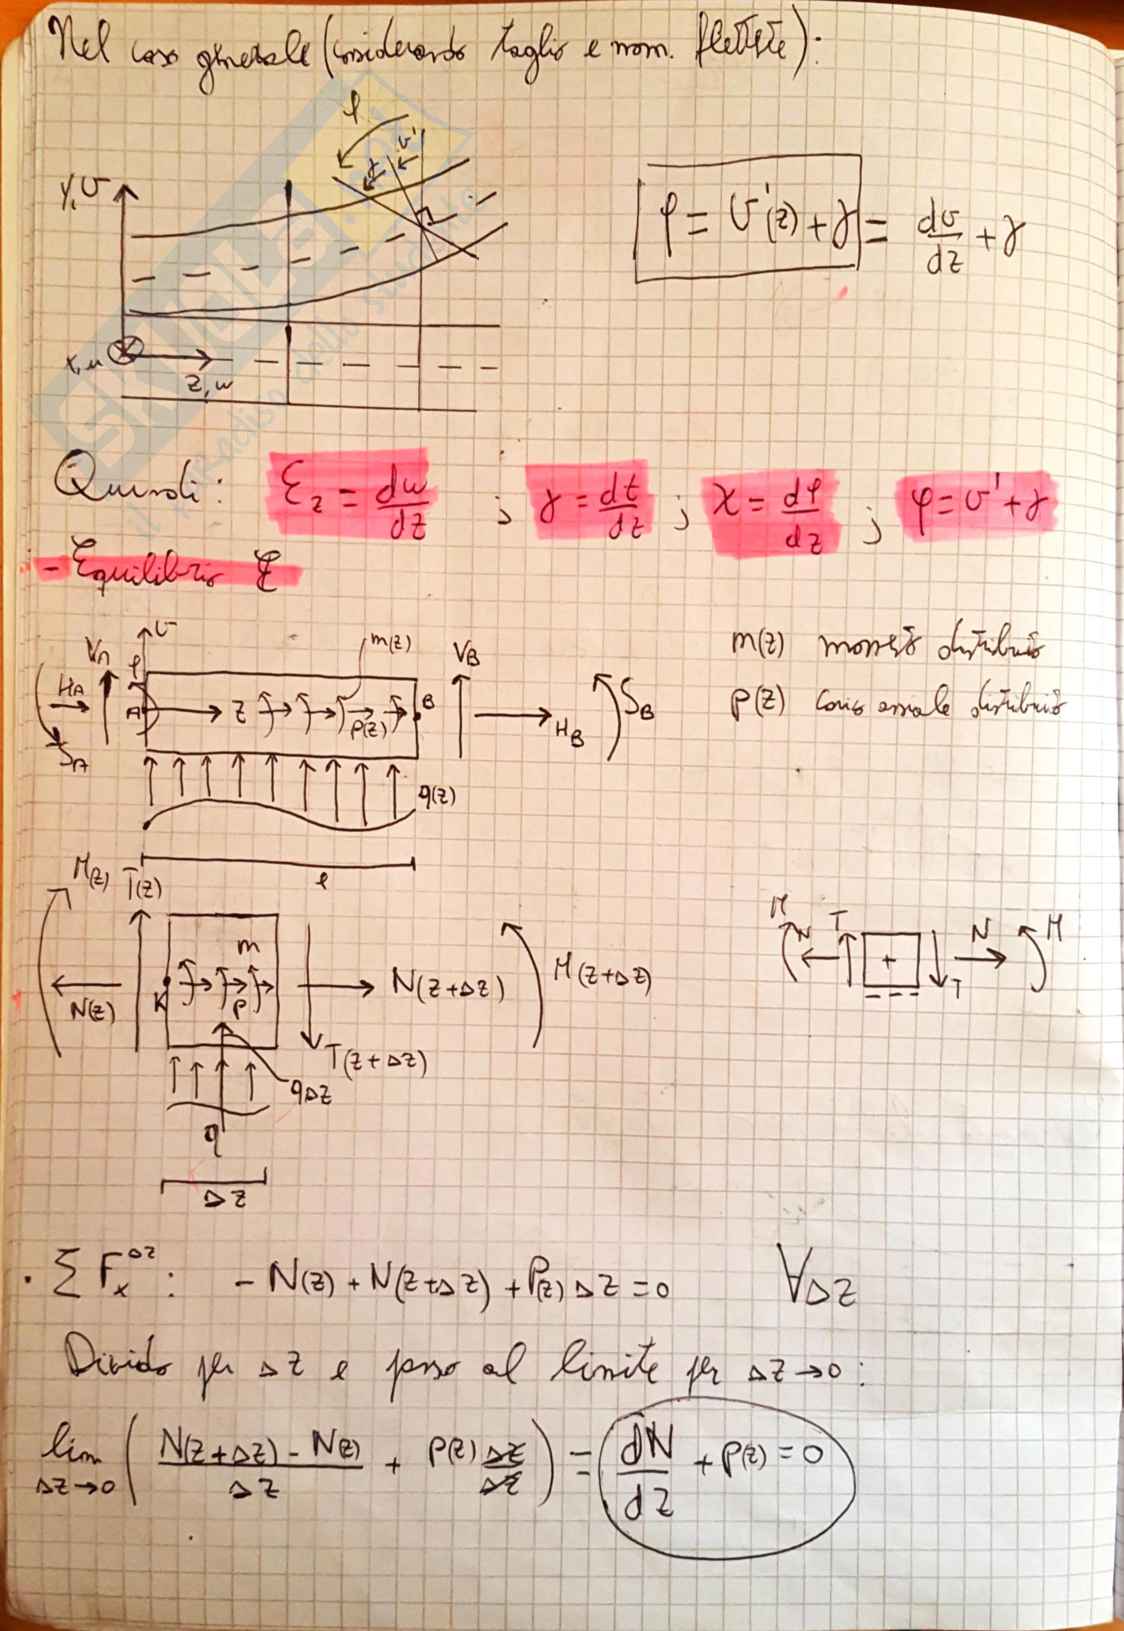 Nel caso generale (considerando taglio e mom. flettente):
φ
v'
γ
y, v
x, u
z, w
φ = v'(z) + γ = dv/dz + γ
Quindi: ε_z = dw/dz ; γ = dt/dz ; χ = dφ/dz ; φ = v' + γ
- Equilibrio
v
φ
m(z)
V_A
H_A
S_A
A
z
p(z)
B
V_B
H_B
S_B
q(z)
l
m(z) momento distribuito
p(z) carico assiale distribuito
M(z) T(z)
N(z)
K
m
p
N(z+Δz)
M(z+Δz)
T(z+Δz)
qΔz
q
Δz
M N T + T N M
· ΣF_x^Δz : - N(z) + N(z+Δz) + p(z) Δz = 0 ∀Δz
Divido per Δz e passo al limite per Δz→0:
lim Δz→0 ( (N(z+Δz) - N(z))/Δz + p(z) Δz/Δz ) = dN/dz + p(z) = 0